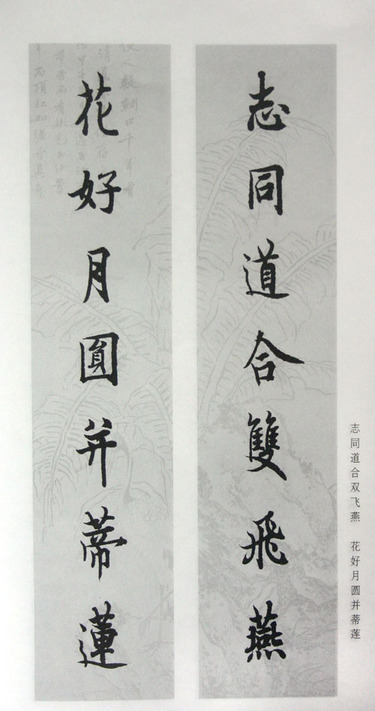 志同道合雙飛燕
花好月圓并蒂蓮
志同道合双飞燕 花好月圆并蒂莲